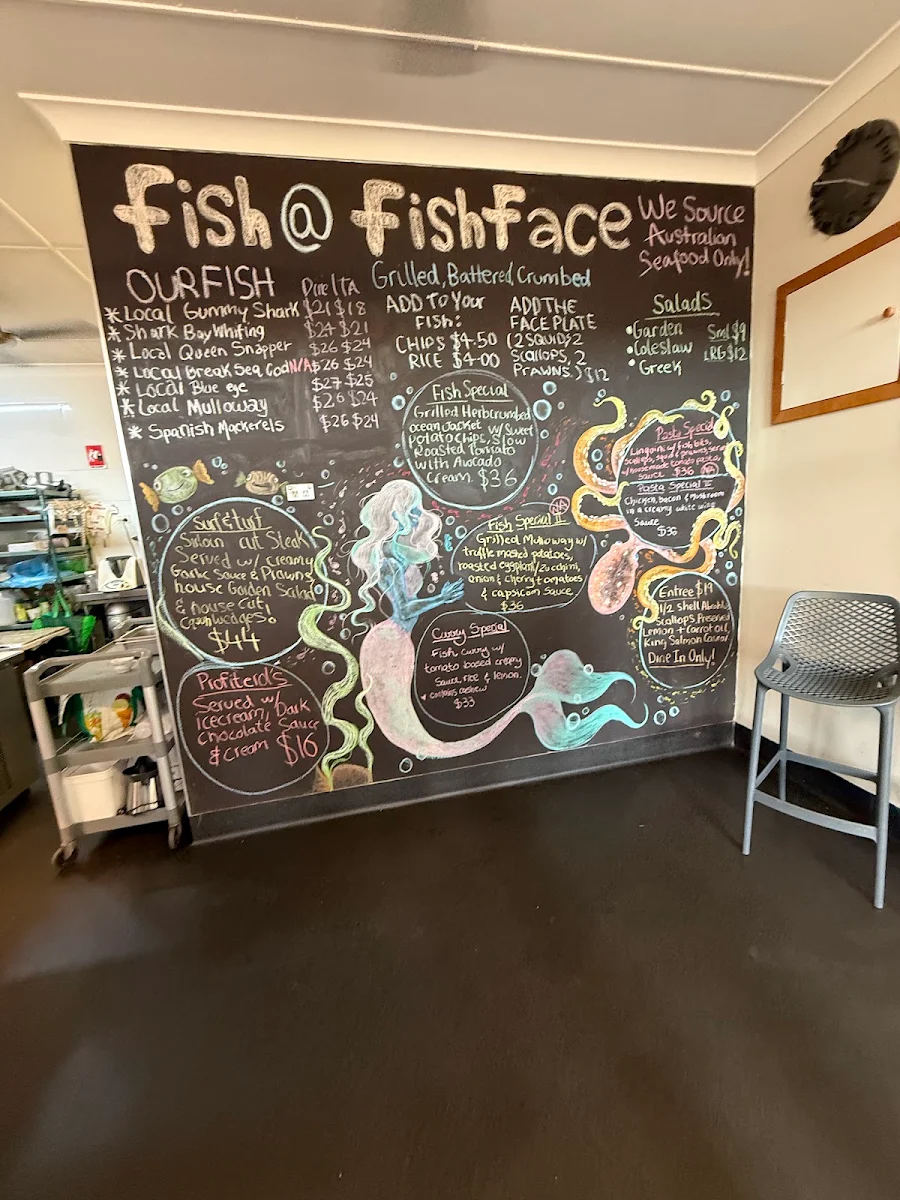 Fish @ FishFace
We Source
Australian
Seafood Only!
OUR FISH
Dine | TA
* Local Gummy Shark $21 $18
* Shark Bay Whiting $24 $21
* Local Queen Snapper $26 $24
* Local Break Sea Cod N/A $26 $24
* Local Blue eye $27 $25
* Local Mulloway $26 $24
* Spanish Mackerels $26 $24
Grilled, Battered, Crumbed
ADD TO Your
FISH:
CHIPS $4-50
RICE $4-00
ADD THE
FACE PLATE
(2 SQUID, 2
Scallops, 2
Prawns.) $12
Salads
• Garden
• Coleslaw
• Greek
Sml $9
LRG $12
Fish Special
Grilled Herb crumbed
ocean Jacket w/ Sweet
potato chips, Slow
Roasted Tomato
with Avocado
Cream $36
Pasta Special
Linguini w/ fish bits,
scallops, squid & prawns,
w/ housemade tomato
sauce $36 NA
Pasta Special II
Chicken, bacon & Mushroom
in a creamy white wine
Sauce
$36
Surf & Turf
Sirloin cut Steak
Served w/ creamy
Garlic Sauce & Prawns,
house Garden Salad
& house cut
Wedges.
$44
Fish Special II NA
Grilled Mulloway w/
truffle mashed potatoes,
roasted eggplant/zucchini,
onion & cherry tomatoes
& capsicum sauce
$36
Curry Special
Fish curry w/
tomato based creamy
Sauce, rice & lemon.
* contains cashew
$33
Entree $19
1/2 Shell Abrolhos
Scallops Preserved
Lemon + Carrot oil
King Salmon Caviar
Dine In Only!
Profiterols
Served w/
icecream, Dark
chocolate Sauce
& cream $16